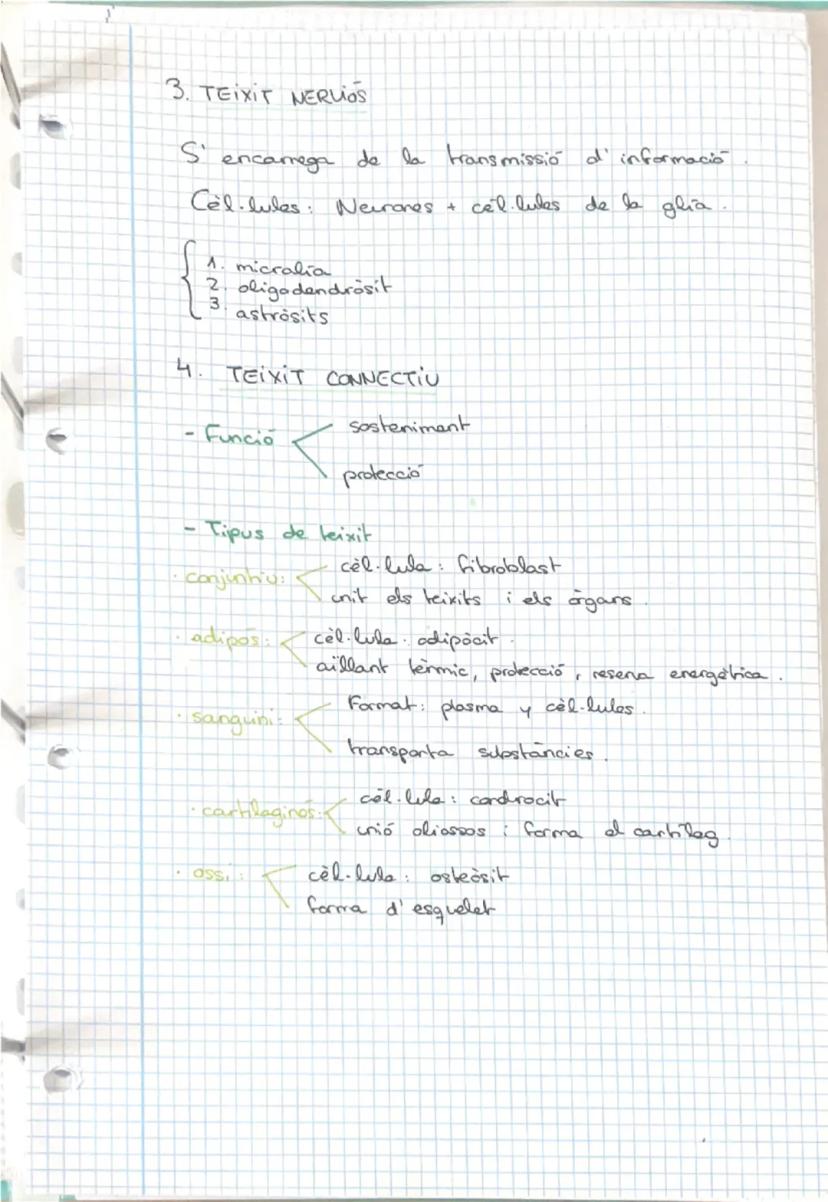 3. TEIXIT NERVIÓS
S' encarrega de la transmissió d' informació.
Cèl·lules: Neurones + cèl·lules de la glia.
1. micralia
2. oligodendròsit
3. astròsits
4. TEIXIT CONNECTIU
- Funció
sosteniment
protecció
- Tipus de teixit
· conjuntiu:
cèl·lula: fibroblast
unit els teixits i els òrgans.
· adipós:
cèl·lula. adipòcit.
aïllant tèrmic, protecció, reserva energètica.
· sanguini:
Format: plasma y cèl·lules.
transporta substàncies.
· cartilaginós:
cèl·lula: condrocit
unió forma el cartílag.
· ossi:
cèl·lula: osteòsit
forma d' esquelet